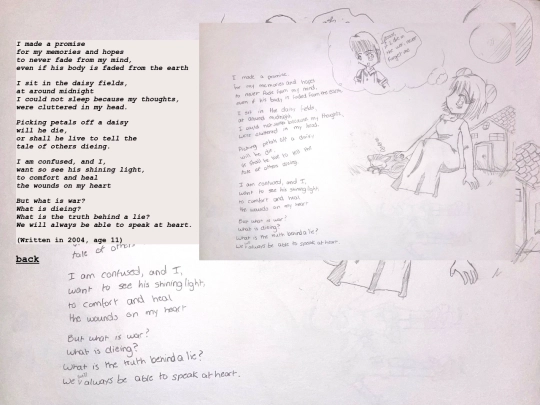 I made a promise
for my memories and hopes
to never fade from my mind,
even if his body is faded from the earth
I sit in the daisy fields,
at around midnight
I could not sleep because my thoughts,
were cluttered in my head.
Picking petals off a daisy
will he die,
or shall he live to tell the
tale of others dieing.
I am confused, and I,
want so see his shining light,
to comfort and heal
the wounds on my heart
But what is war?
What is dieing?
What is the truth behind a lie?
We will always be able to speak at heart.
(Written in 2004, age 11)
back
I made a promise
for my memories and hopes
to never fade from my mind,
even if his body is faded from the earth
I sit in the daisy fields,
at around midnight
I could not sleep because my thoughts,
were cluttered in my head.
Picking petals off a daisy,
will he die,
or shall he live to tell the
tale of others dieing.
I am confused, and I,
want to see his shining light,
to comfort and heal
the wounds on my heart
But what is war?
what is dieing?
What is the truth behind a lie?
We will always be able to speak at heart.
tale of others
I am confused, and I,
want to see his shining light,
to comfort and heal
the wounds on my heart
But what is war?
what is dieing?
What is the truth behind a lie?
We will always be able to speak at heart.